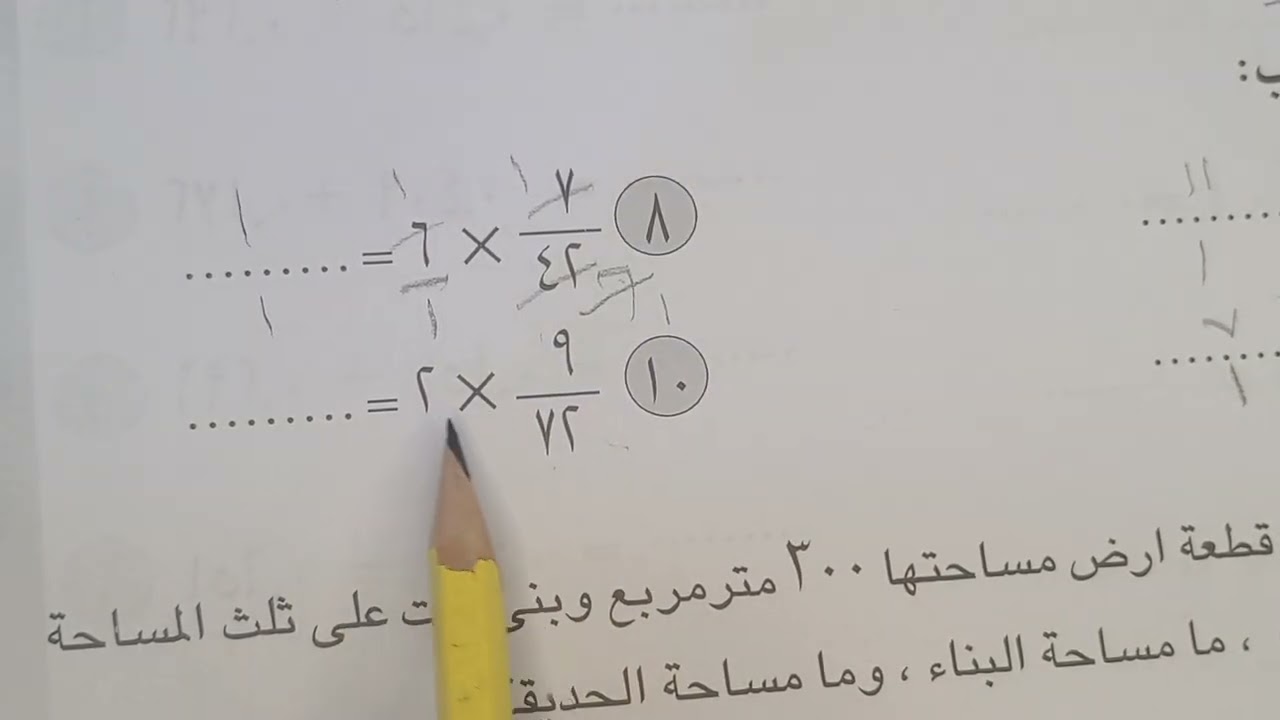 ب:
٨ ٧/٤٢ × ٦ = .........
١ ١ ٦ ١ ١ ١
١١
.........
١
١٠ ٩/٧٢ × ٢ = .........
١
٧
.........
١
قطعة ارض مساحتها ٣٠٠ مترمربع وبني على ثلث المساحة
، ما مساحة البناء ، وما مساحة